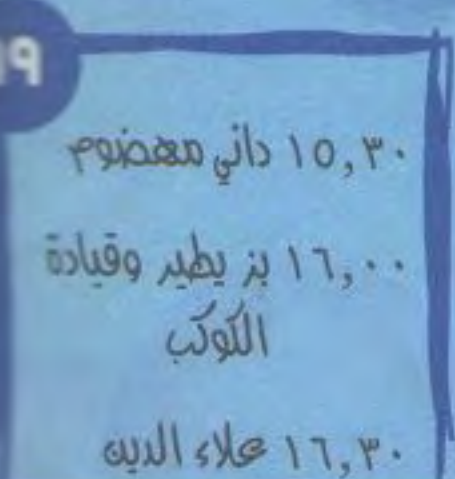 ١٩
١٥,٣٠ داني مهضوم
١٦,٠٠ بز يطير وقيادة
الكوكب
١٦,٣٠ علاء الدين